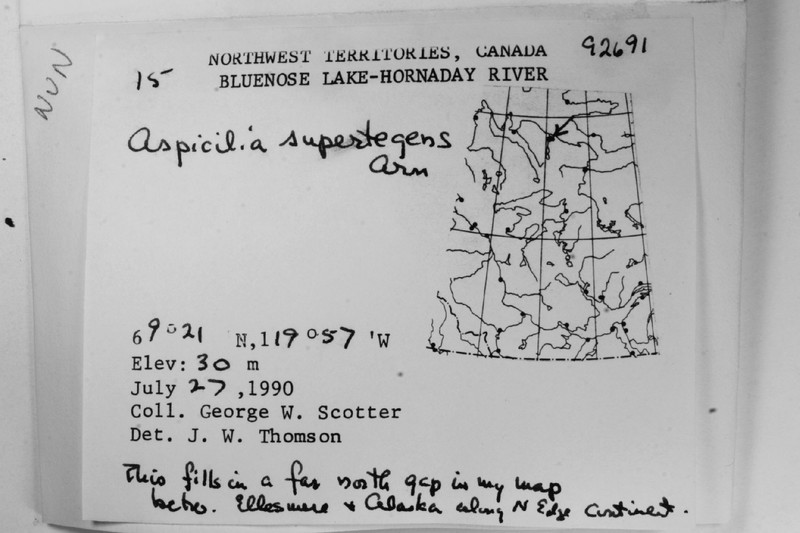 NUN
NORTHWEST TERRITORIES, CANADA 92691
15 BLUENOSE LAKE-HORNADAY RIVER
Aspicilia supertegens
Arn
69°21 N,119°57 'W
Elev: 30 m
July 27 ,1990
Coll. George W. Scotter
Det. J. W. Thomson
This fills in a far north gap in my map
betw. Ellesmere & Alaska along N Edge Continent.